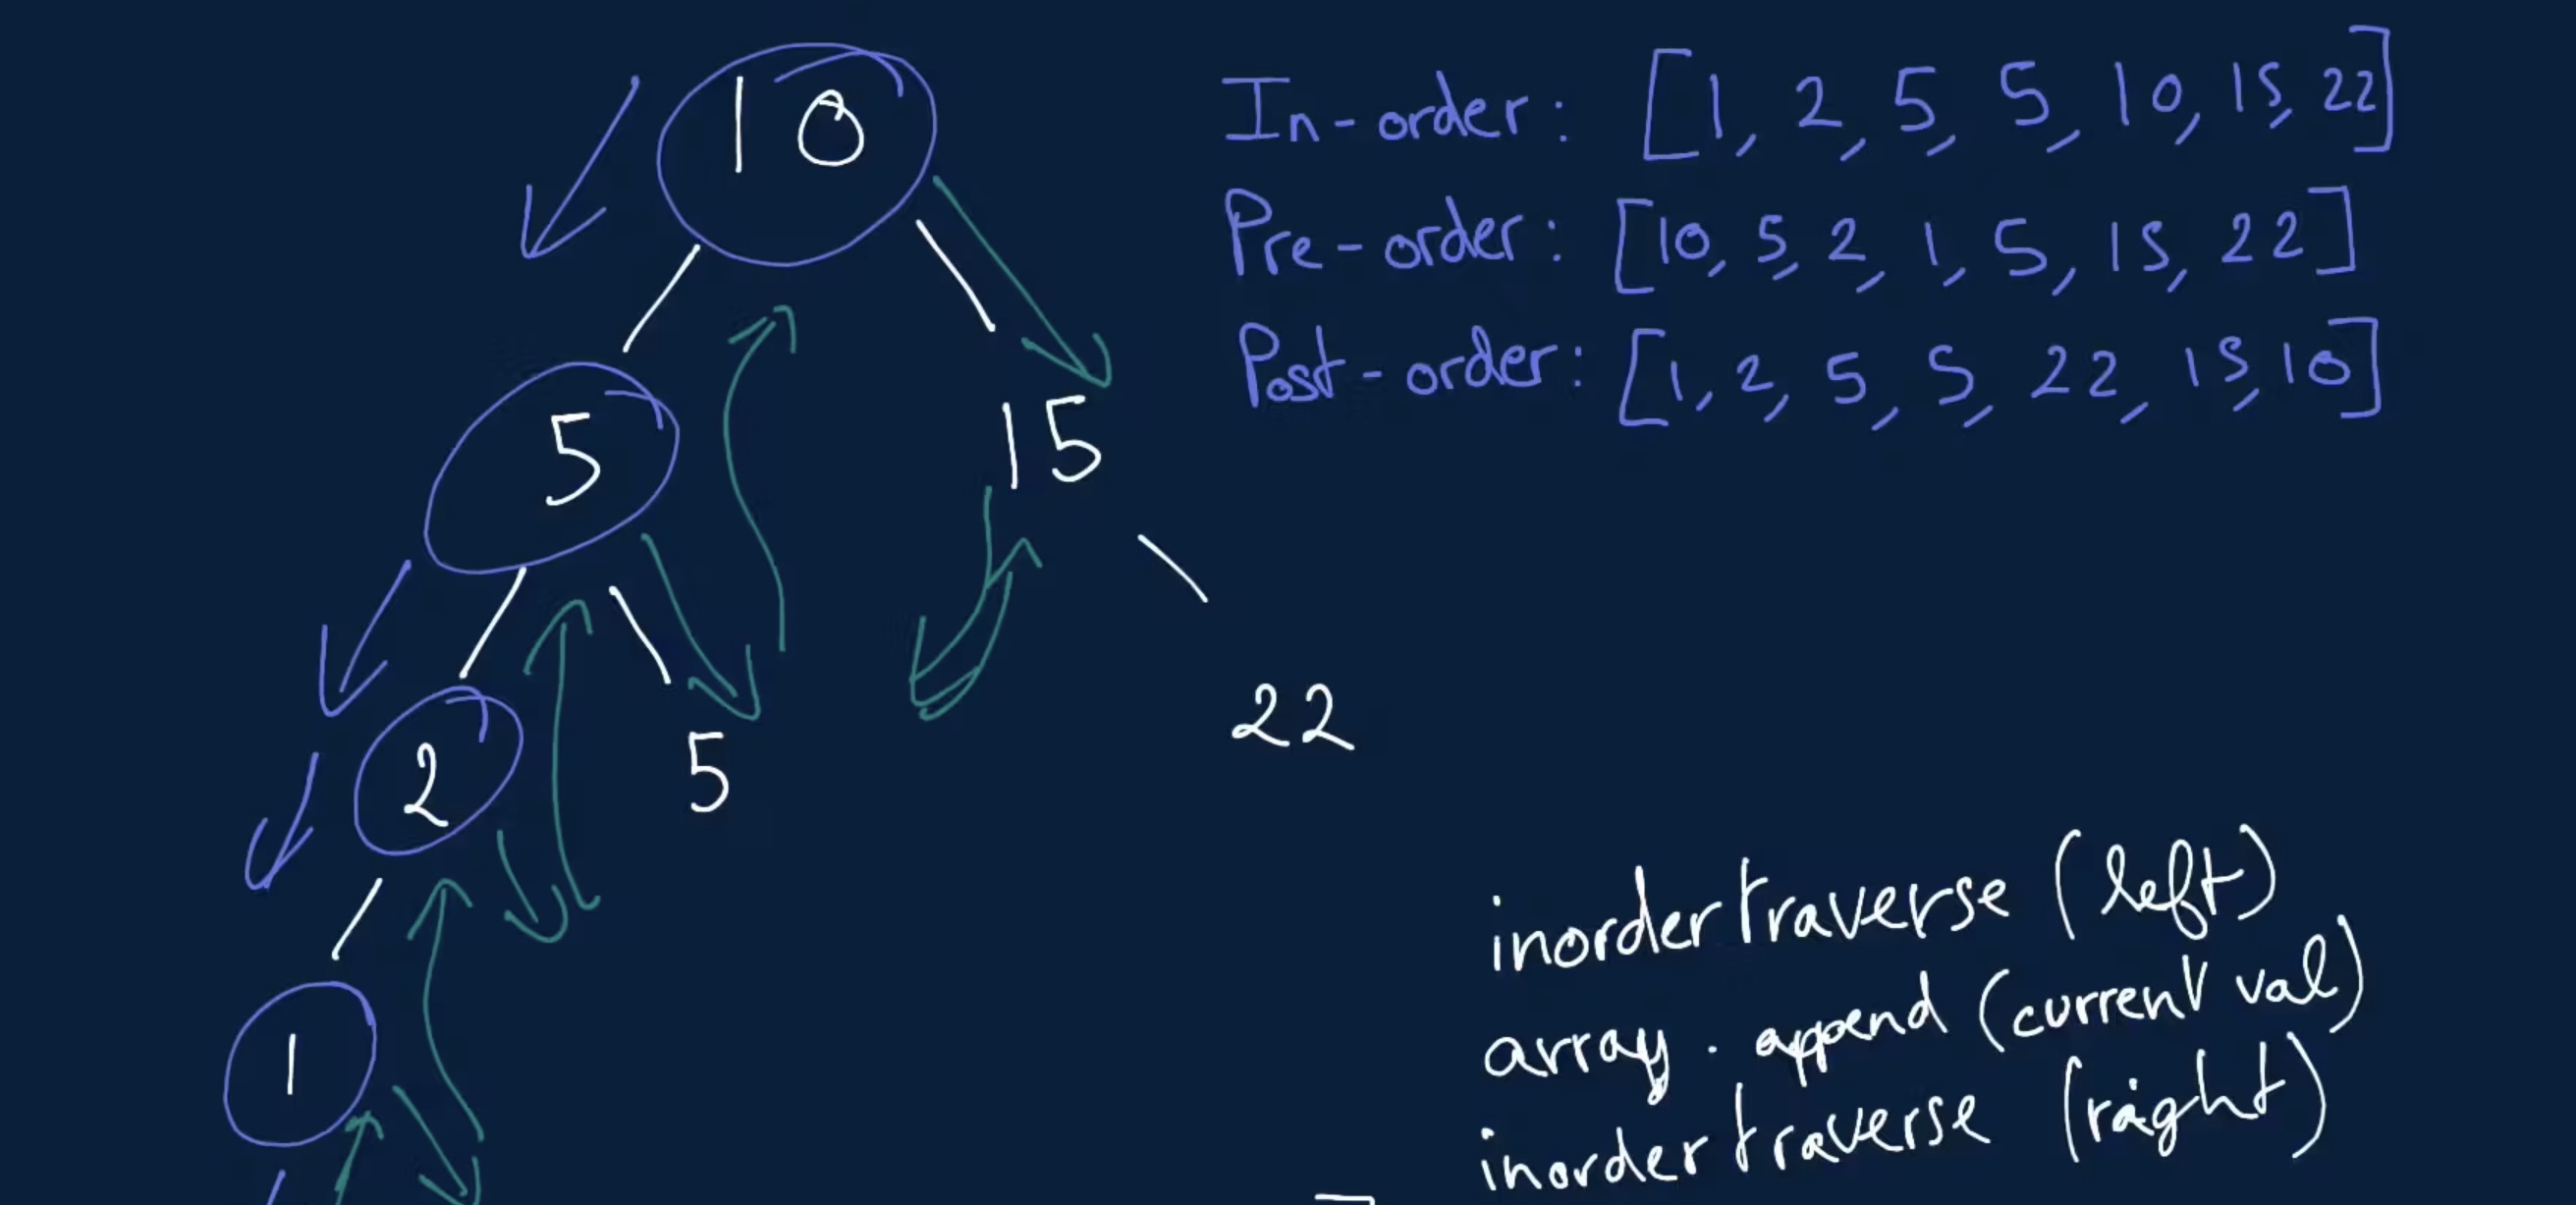 10
In-order: [1, 2, 5, 5, 10, 15, 22]
Pre-order: [10, 5, 2, 1, 5, 15, 22]
Post-order: [1, 2, 5, 5, 22, 15, 10]
5
15
2
5
22
1
inordertraverse (left)
array. append (current val)
inordertraverse (right)